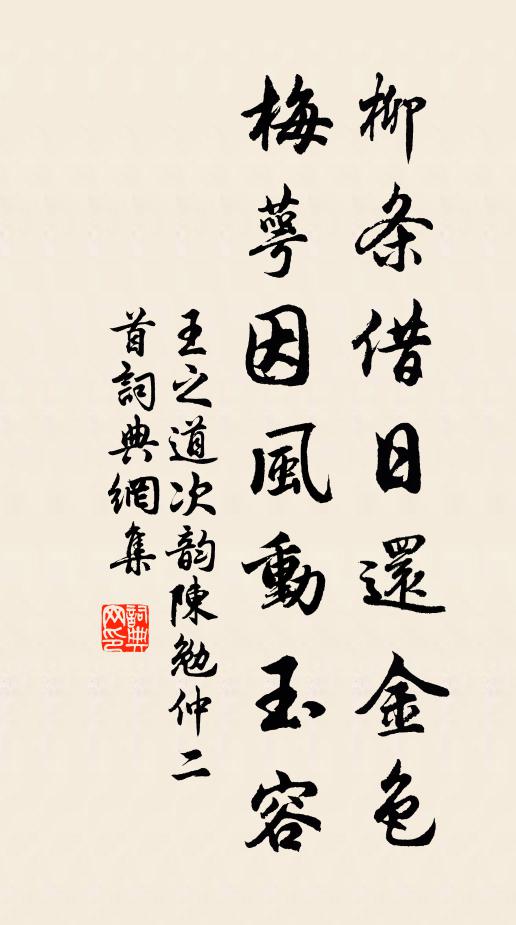 柳条借日還金色
梅萼因風動玉容
王之道次韵陳勉仲二
首詞典網集
詞典
网印